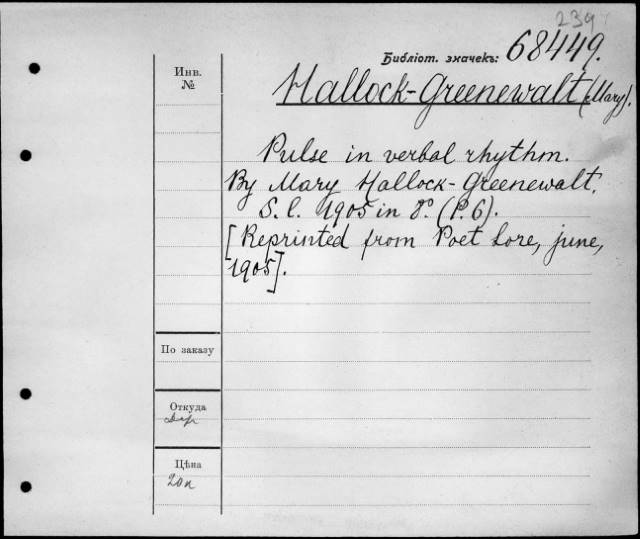 239
Библіот. значекъ: 68449.
Инв.
№
Hallock-Greenewalt (Mary).
Pulse in verbal rhythm.
By Mary Hallock-Greenewalt.
S. l. 1905 in 8°. (P. 6).
[Reprinted from Poet Lore, june,
1905].
По заказу
Откуда
Цѣна
20к